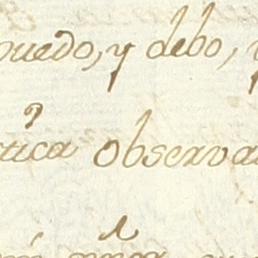 puedo, y debo,
tica observa